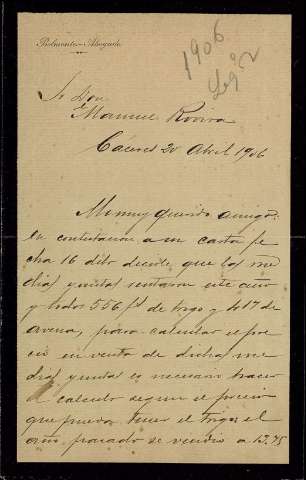 Belmonte-Abogado
1906
Sr Don
Manuel Rovira
Cáceres 20 Abril 1906
Mi muy querido amigo:
en contestacion a su carta fe
cha 16 debo decirle que las me
dias yuntas rentaron este año
y todos 556 fs de trigo y 417 de
avena, para calcular el pre
cio en venta de dichas me
dias yuntas es necesario hacer
el calculo segun el precio
que pueda tener el trigo, el
año pasado se vendió a 13.75